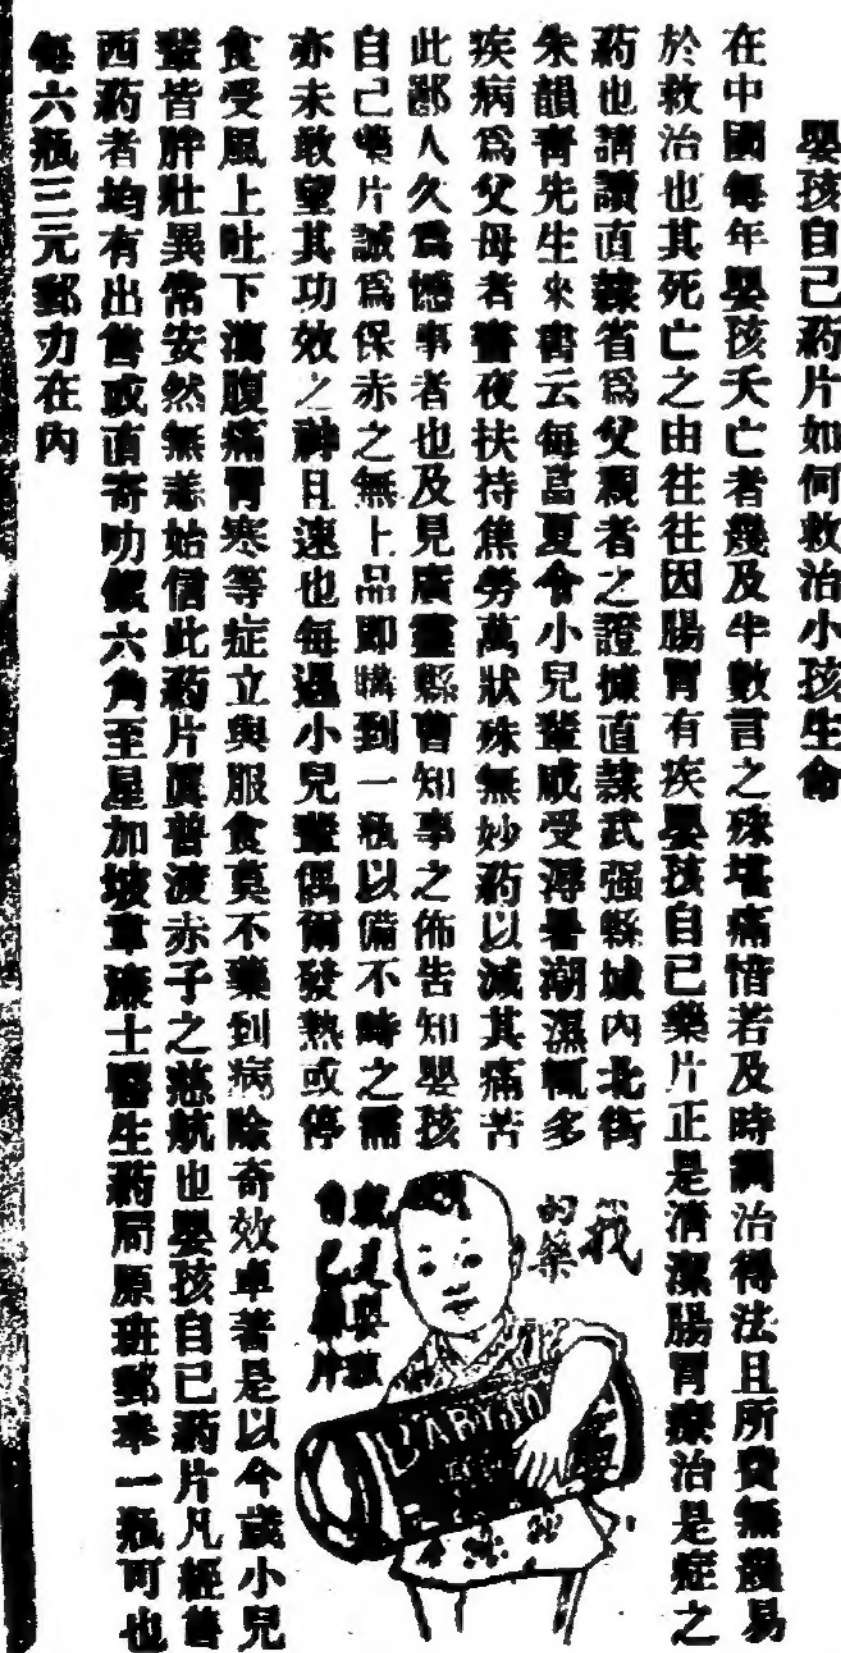 嬰孩自己葯片如何救治小孩生命
在中國每年嬰孩夭亡者幾及半數言之殊堪痛惜若及時調治得法且所費無幾易
於救治也其死亡之由往往因腸胃有疾嬰孩自己藥片正是清潔腸胃療治是症之
葯也請讀直隸省爲父親者之證據直隸武强縣城內北街
朱韻青先生來書云每當夏令小兒輩或受溽暑潮濕輒多
疾病爲父母者晝夜扶持焦勞萬狀殊無妙葯以減其痛苦
此鄙人久爲憾事者也及見廣靈縣曹知事之佈告知嬰孩
自己藥片誠爲保赤之無上品即購到一瓶以備不時之需
亦未敢望其功效之神且速也每遇小兒輩偶爾發熱或停
食受風上吐下瀉腹痛胃寒等症立與服食莫不藥到病除奇效卓著是以今歲小兒
輩皆胖壯異常安然無恙始信此葯片眞普渡赤子之慈航也嬰孩自己葯片凡經售
西葯者均有出售或直寄叻銀六角至星加坡韋廉士醫生葯局原班郵奉一瓶可也
每六瓶三元郵力在內
我
的藥
就是嬰孩
自己藥片
BABY'S O